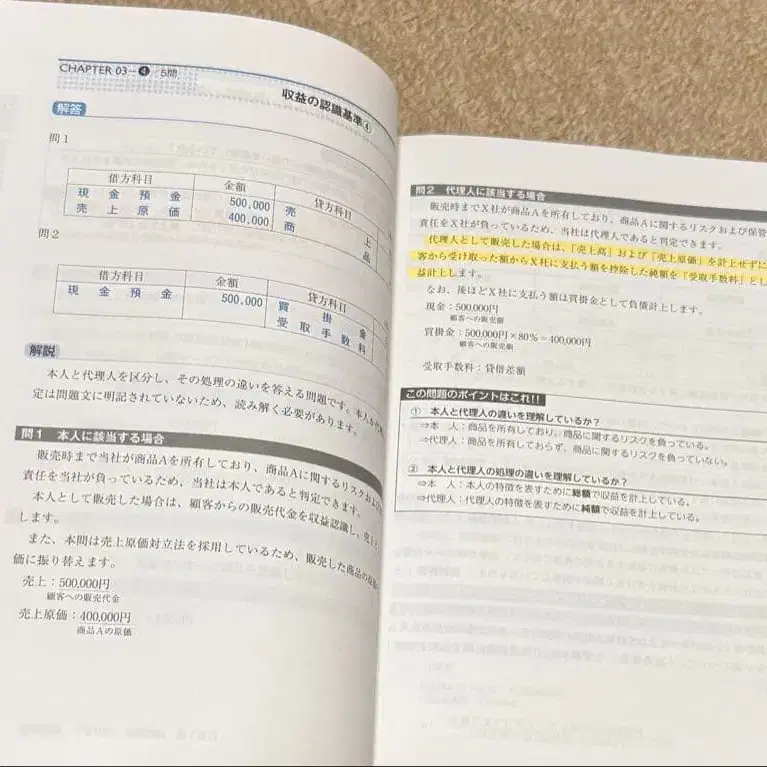 CHAPTER 03-❹ 5問
収益の認識基準④
解答
問1
借方科目 金額 貸方科目
現金預金 500,000 売上
売上原価 400,000 商品
問2
借方科目 金額 貸方科目
現金預金 500,000 買掛金
受取手数料
解説
本人と代理人を区分し、その処理の違いを答える問題です。本人か代理
定は問題文に明記されていないため、読み解く必要があります。
問1 本人に該当する場合
販売時まで当社が商品Aを所有しており、商品Aに関するリスクおよび
責任を当社が負っているため、当社は本人であると判定できます。
本人として販売した場合は、顧客からの販売代金を収益認識し、売上
します。
また、本問は売上原価対立法を採用しているため、販売した商品の
価に振り替えます。
売上：500,000円
顧客への販売代金
売上原価：400,000円
商品Aの原価
問2 代理人に該当する場合
販売時までX社が商品Aを所有しており、商品Aに関するリスクおよび保管
責任をX社が負っているため、当社は代理人であると判定できます。
代理人として販売した場合は、「売上高」および「売上原価」を計上せずに
客から受け取った額からX社に支払う額を控除した純額を「受取手数料」とし
益計上します。
なお、後ほどX社に支払う額は買掛金として負債計上します。
現金：500,000円
顧客への販売額
買掛金：500,000円×80%＝400,000円
顧客への販売額
受取手数料：貸借差額
この問題のポイントはこれ!!
① 本人と代理人の違いを理解しているか？
⇒本　人：商品を所有しており、商品に関するリスクを負っている。
⇒代理人：商品を所有しておらず、商品に関するリスクを負っていない。
② 本人と代理人の処理の違いを理解しているか？
⇒本　人：本人の特徴を表すために総額で収益を計上している。
⇒代理人：代理人の特徴を表すために純額で収益を計上している。